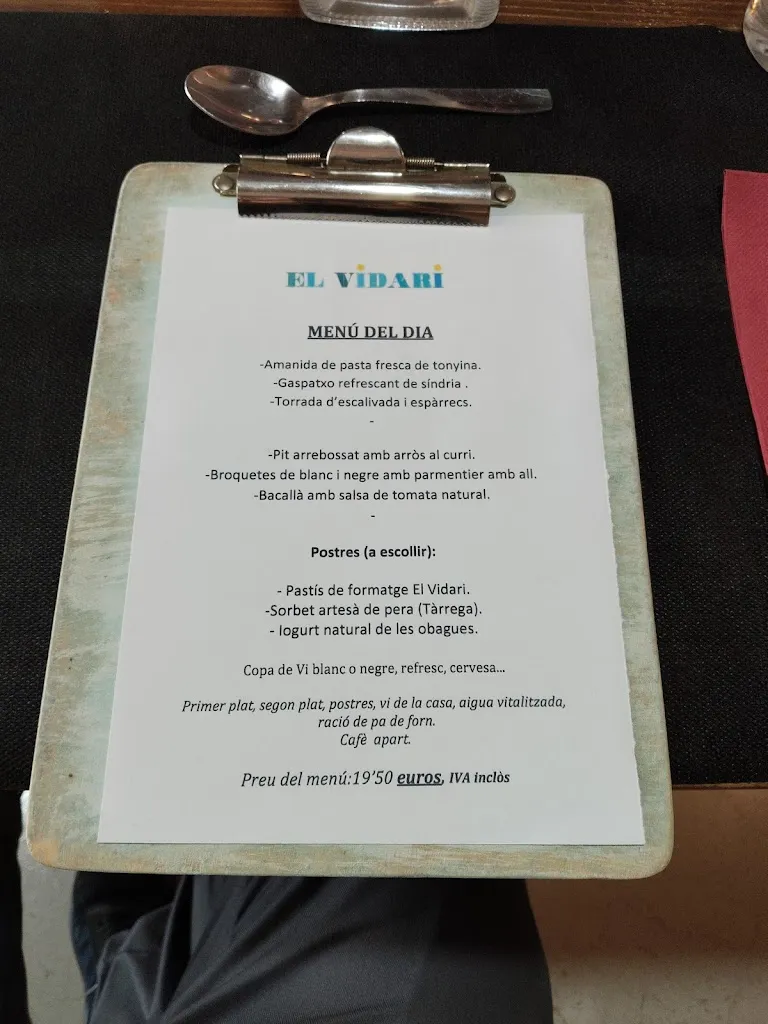 EL ViDARi
MENÚ DEL DIA
-Amanida de pasta fresca de tonyina.
-Gaspatxo refrescant de síndria .
-Torrada d'escalivada i espàrrecs.
-
-Pit arrebossat amb arròs al curri.
-Broquetes de blanc i negre amb parmentier amb all.
-Bacallà amb salsa de tomata natural.
-
Postres (a escollir):
- Pastís de formatge El Vidari.
-Sorbet artesà de pera (Tàrrega).
- Iogurt natural de les obagues.
Copa de Vi blanc o negre, refresc, cervesa...
Primer plat, segon plat, postres, vi de la casa, aigua vitalitzada,
ració de pa de forn.
Cafè apart.
Preu del menú:19'50 euros, IVA inclòs